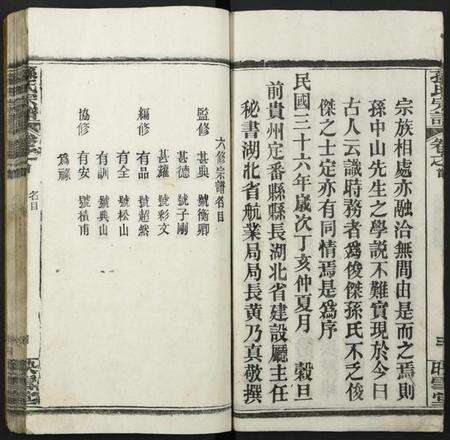 孫氏宗譜 卷之首
三
映雪堂
宗族相處亦融洽無間由是而之焉則
孫中山先生之學説不難實現於今日
古人云識時務者爲俊傑孫氏不乏俊
傑之士定亦有同情焉是爲序
民國三十六年歲次丁亥仲夏月 穀旦
前貴州定番縣縣長湖北省建設廳主任
秘書湖北省航業局局長黃乃真敬撰
六修宗譜名目
監修 甚典 號衡卿
甚德 號子剛
甚羅 號彩文
編修 有品 號超然
有全 號松山
有訓 號典山
協修 有安 號積甫
爲藤
孫氏宗譜
名目